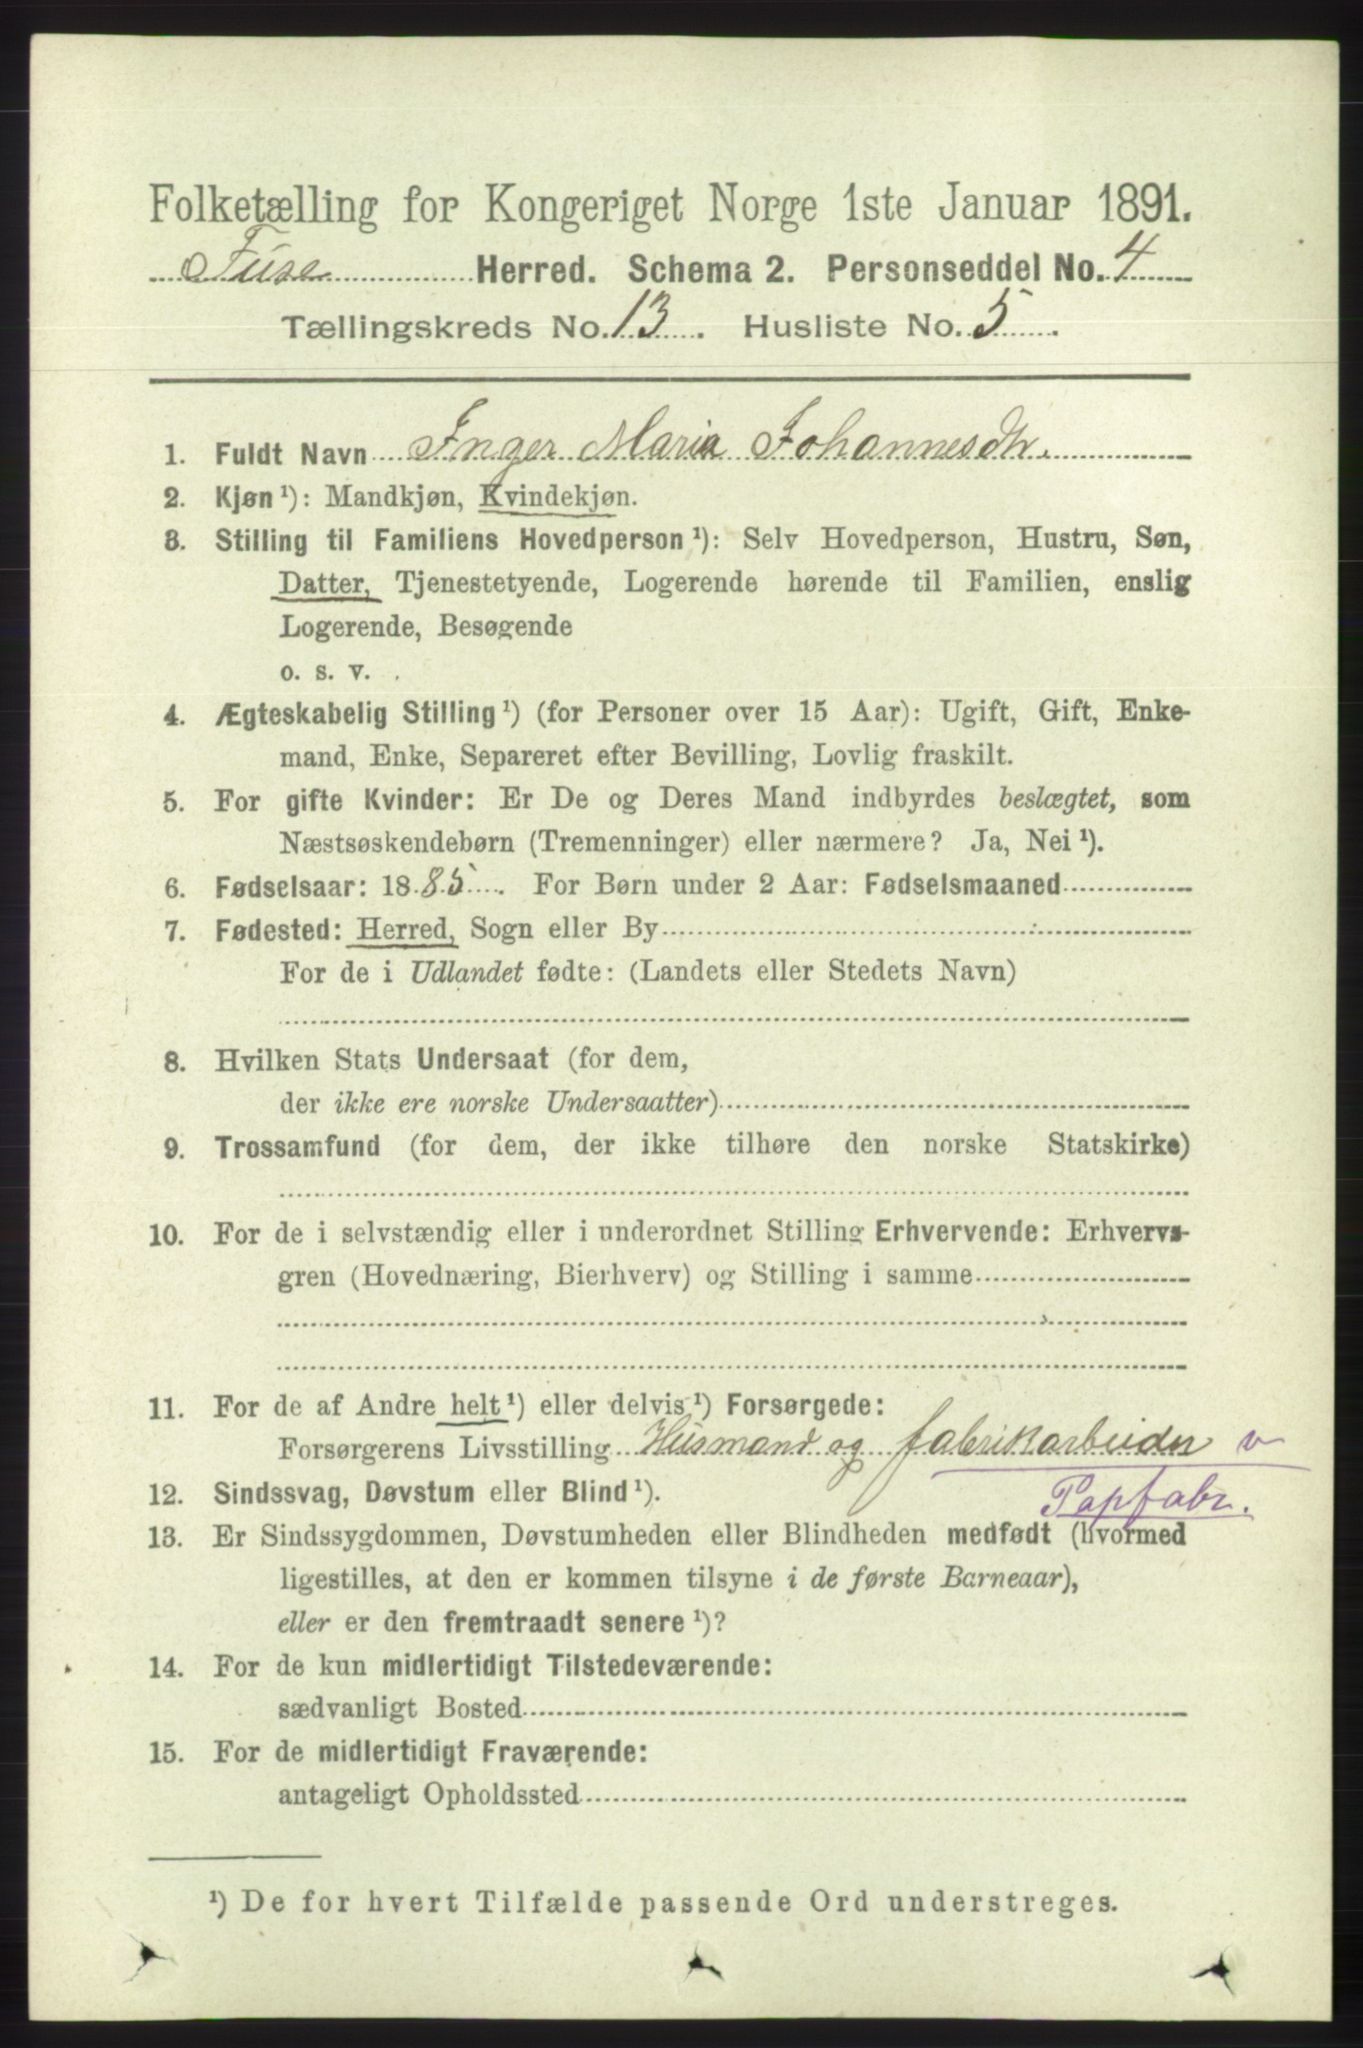 Folketælling for Kongeriget Norge 1ste Januar 1891.
Fuse Herred. Schema 2. Personseddel No. 4
Tællingskreds No. 13. Husliste No. 5.
1. Fuldt Navn Inger Maria Johannesdtr.
2. Kjøn ¹): Mandkjøn, Kvindekjøn.
3. Stilling til Familiens Hovedperson ¹): Selv Hovedperson, Hustru, Søn,
Datter, Tjenestetyende, Logerende hørende til Familien, enslig
Logerende, Besøgende
o. s. v.
4. Ægteskabelig Stilling ¹) (for Personer over 15 Aar): Ugift, Gift, Enke-
mand, Enke, Separeret efter Bevilling, Lovlig fraskilt.
5. For gifte Kvinder: Er De og Deres Mand indbyrdes beslægtet, som
Næstsøskendebørn (Tremenninger) eller nærmere? Ja, Nei ¹).
6. Fødselsaar: 1885. For Børn under 2 Aar: Fødselsmaaned
7. Fødested: Herred, Sogn eller By
For de i Udlandet fødte: (Landets eller Stedets Navn)
8. Hvilken Stats Undersaat (for dem,
der ikke ere norske Undersaatter)
9. Trossamfund (for dem, der ikke tilhøre den norske Statskirke)
10. For de i selvstændig eller i underordnet Stilling Erhvervende: Erhvervs-
gren (Hovednæring, Bierhverv) og Stilling i samme
11. For de af Andre helt ¹) eller delvis ¹) Forsørgede:
Forsørgerens Livsstilling Husmand og fabrikarbeider v
Papfabr.
12. Sindssvag, Døvstum eller Blind ¹).
13. Er Sindssygdommen, Døvstumheden eller Blindheden medfødt (hvormed
ligestilles, at den er kommen tilsyne i de første Barneaar),
eller er den fremtraadt senere ¹)?
14. For de kun midlertidigt Tilstedeværende:
sædvanligt Bosted
15. For de midlertidigt Fraværende:
antageligt Opholdssted
¹) De for hvert Tilfælde passende Ord understreges.